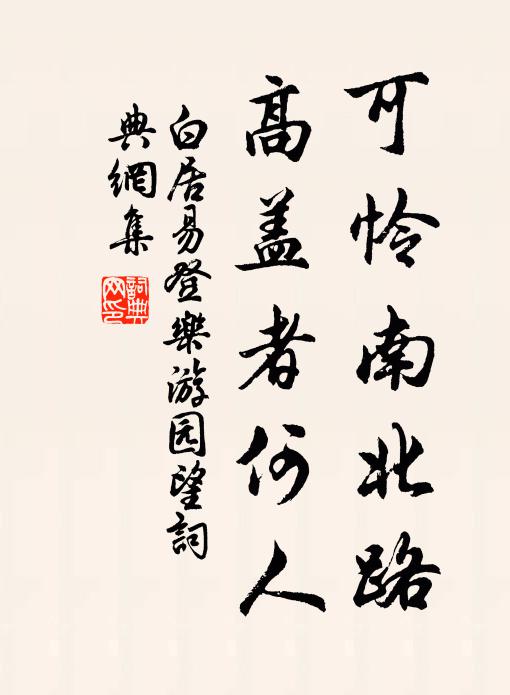 可怜南北路
高盖者何人
白居易登樂游园望詞
典網集
詞典网印